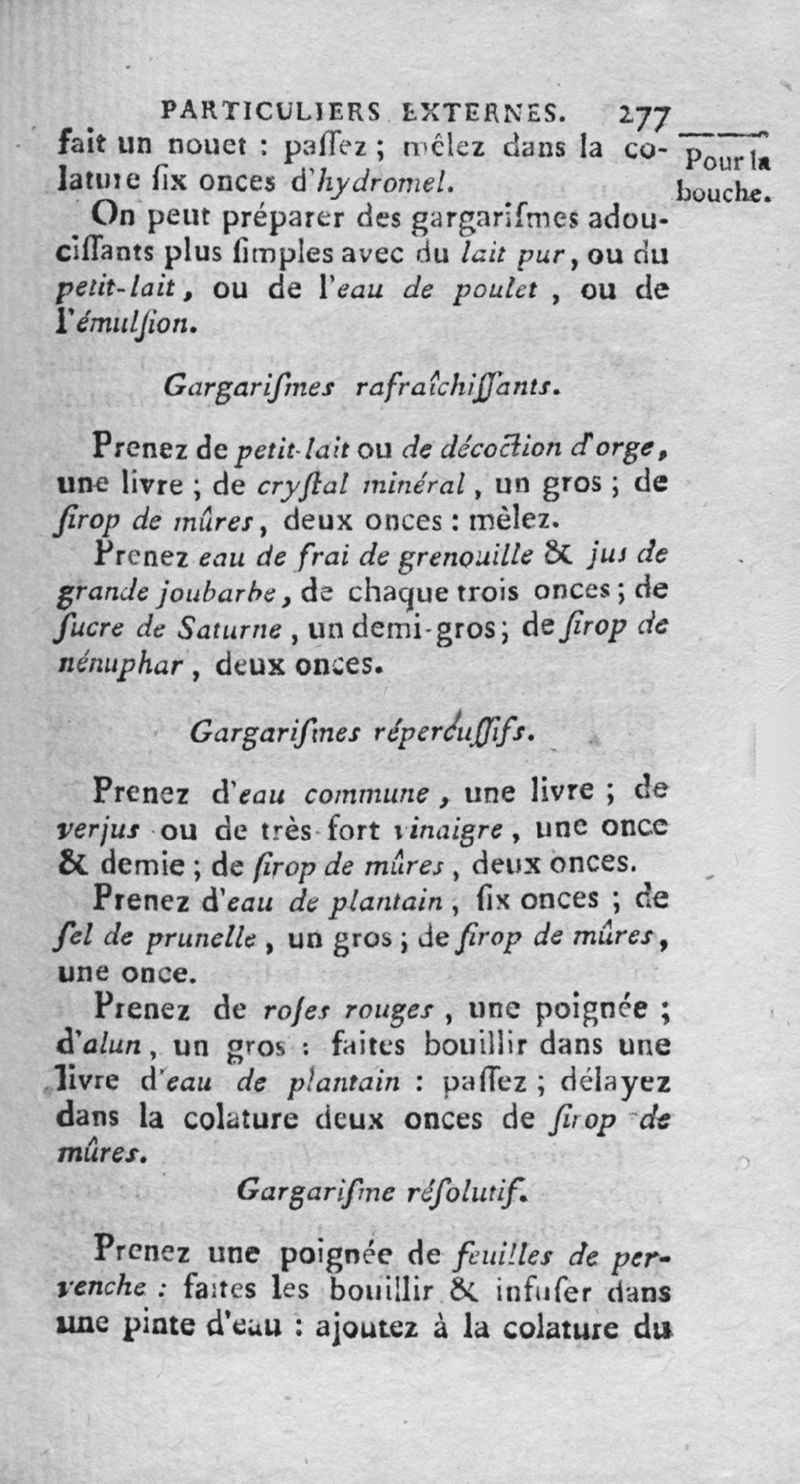 PARTICULIERS EXTERNES. 277
fait un nouet : paſſez ; mêlez dans la co-
lature ſix onces d'hydromel.
Pour la
bouche.
On peut préparer des gargariſmes adou-
ciſſants plus ſimples avec du lait pur, ou du
petit-lait, ou de l'eau de poulet, ou de
l'émulſion.
Gargariſmes rafraîchiſſants.
Prenez de petit-lait ou de décoction d'orge,
une livre ; de cryſtal minéral, un gros ; de
ſirop de mûres, deux onces : mêlez.
Prenez eau de frai de grenouille & jus de
grande joubarbe, de chaque trois onces ; de
ſucre de Saturne, un demi-gros ; de ſirop de
nénuphar, deux onces.
Gargariſmes répercuſſifs.
Prenez d'eau commune, une livre ; de
verjus ou de très-fort vinaigre, une once
& demie ; de ſirop de mûres, deux onces.
Prenez d'eau de plantain, ſix onces ; de
ſel de prunelle, un gros ; de ſirop de mûres,
une once.
Prenez de roſes rouges, une poignée ;
d'alun, un gros : faites bouillir dans une
livre d'eau de plantain : paſſez ; délayez
dans la colature deux onces de ſirop de
mûres.
Gargariſme réſolutif.
Prenez une poignée de feuilles de per-
venche : faites les bouillir & infuſer dans
une pinte d'eau : ajoutez à la colature du